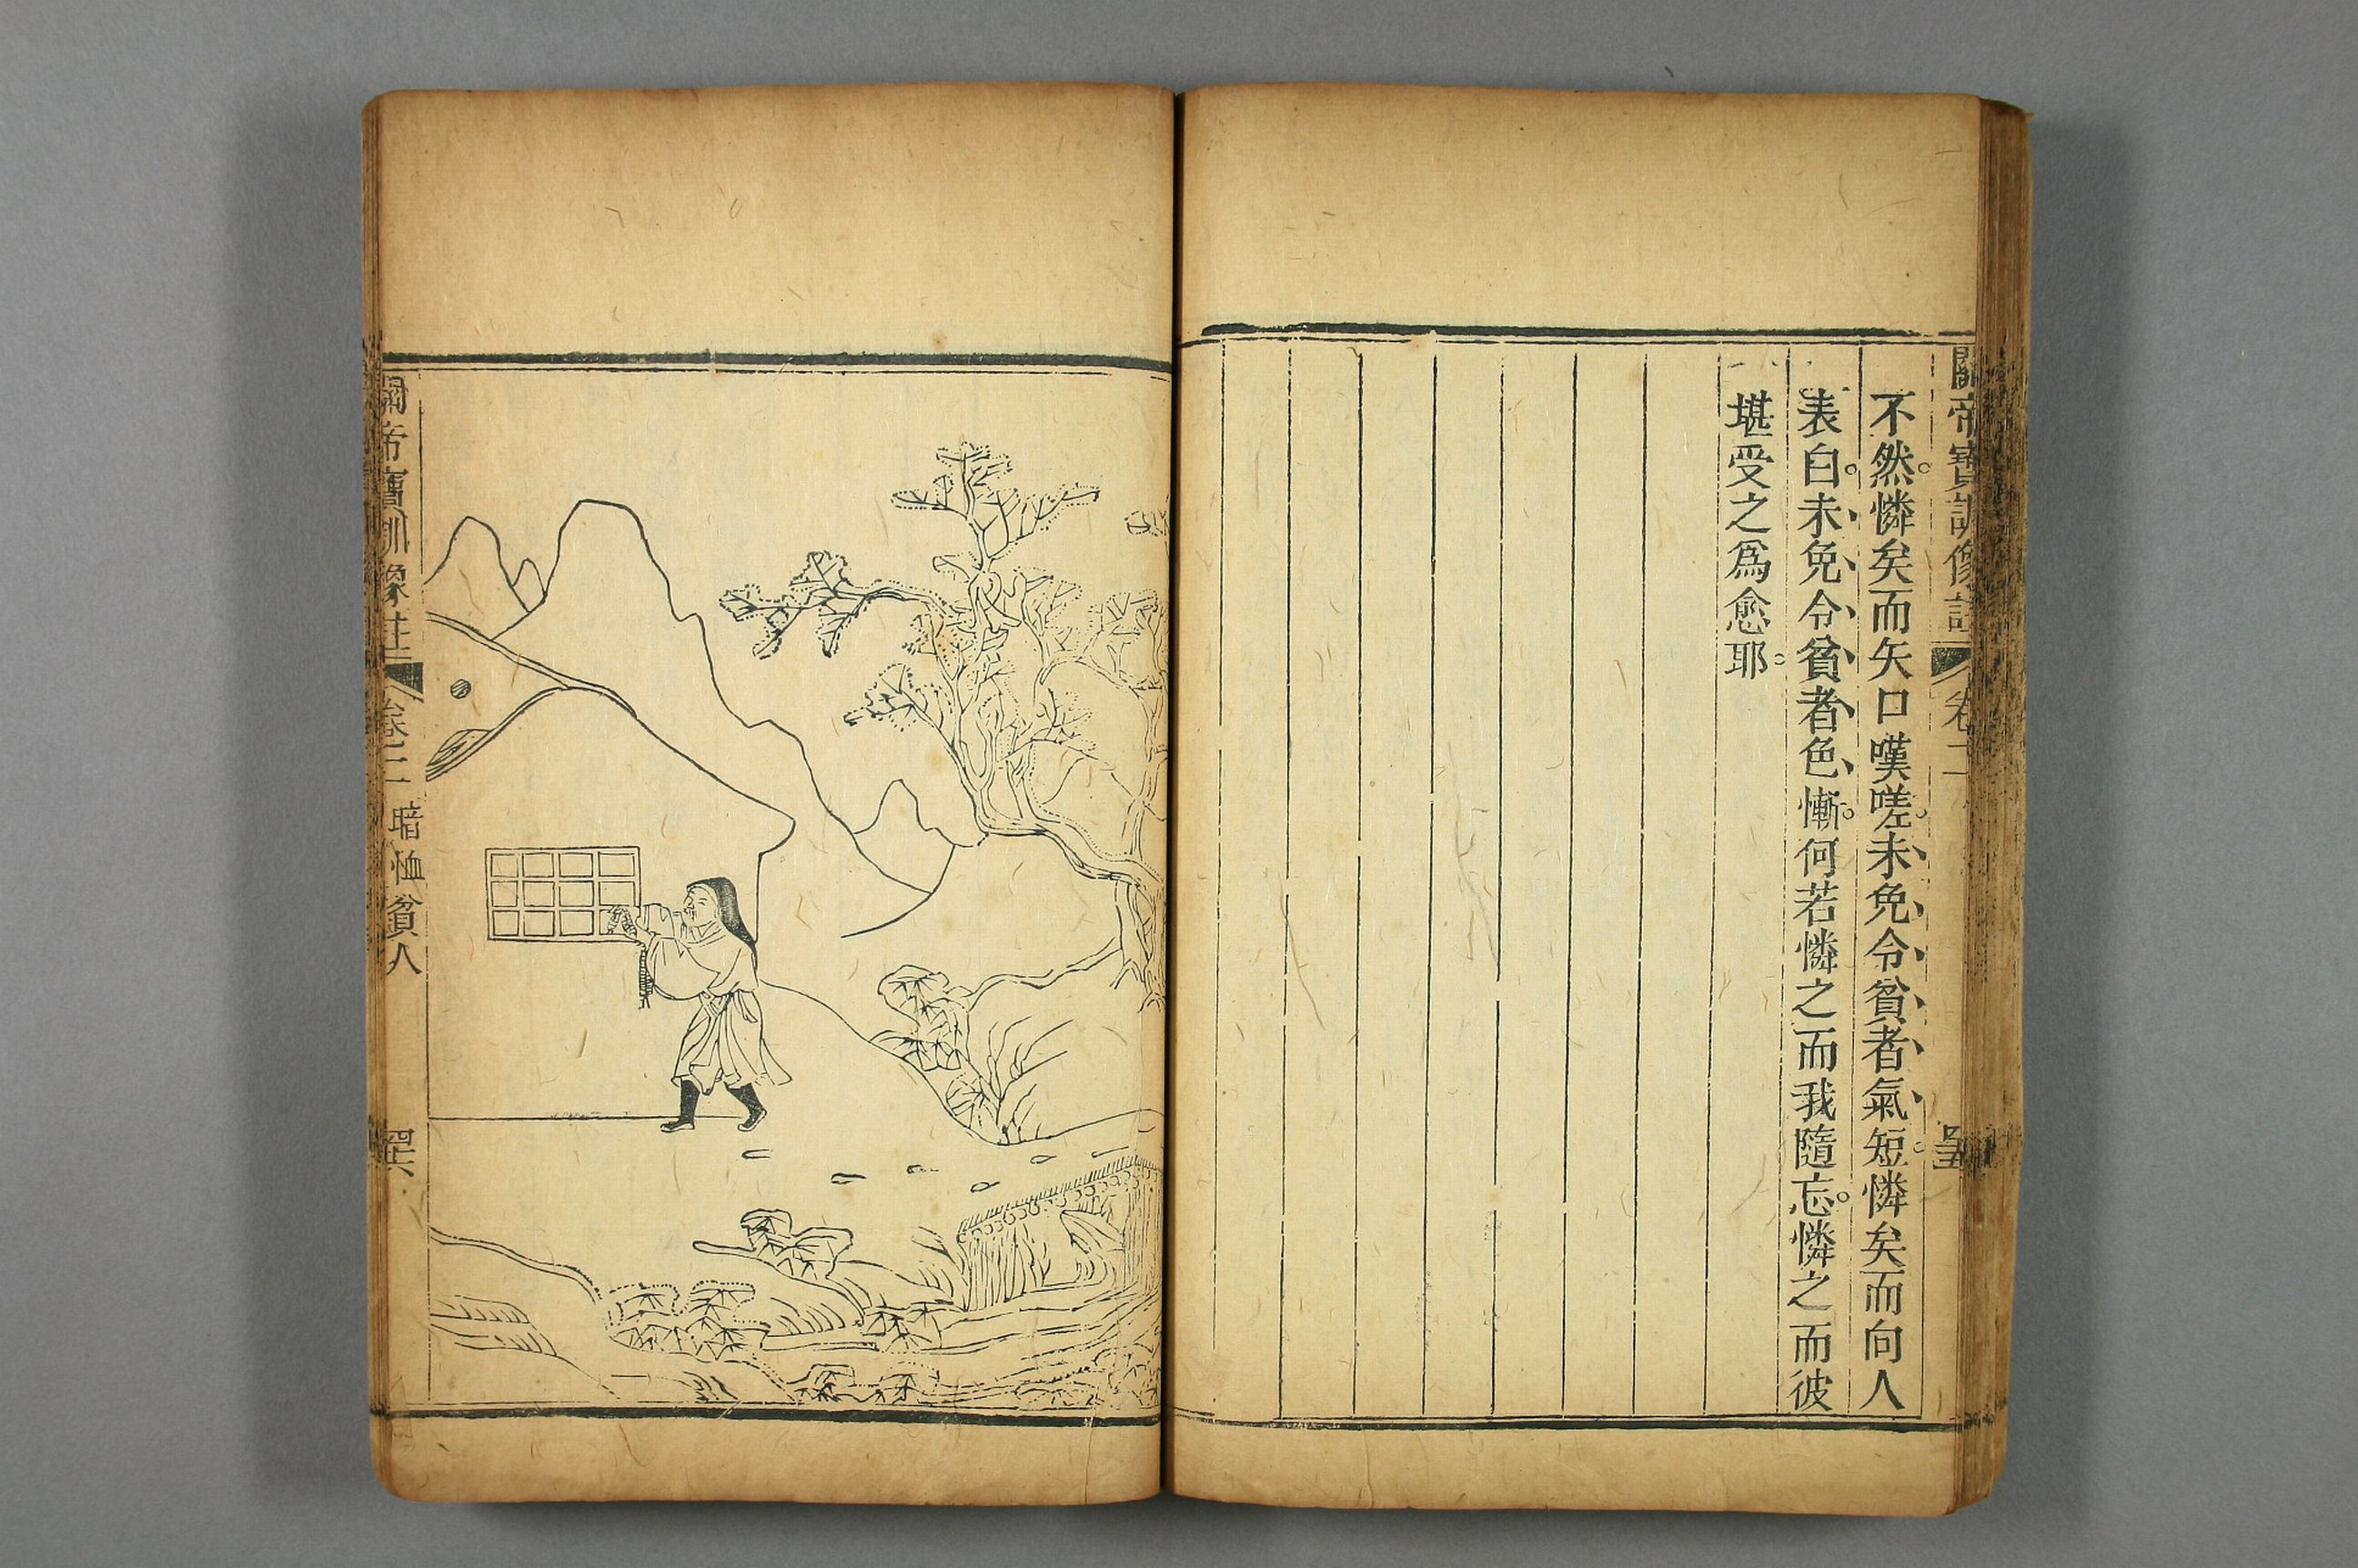 關帝寶訓像註 卷二
不然憐矣而矢口嘆嗟未免令貧者氣短憐矣而向人
表白未免令貧者色慚何若憐之而我隨忘憐之而彼
堪受之為愈耶
關帝寶訓像註 卷二 暗恤貧人 四六